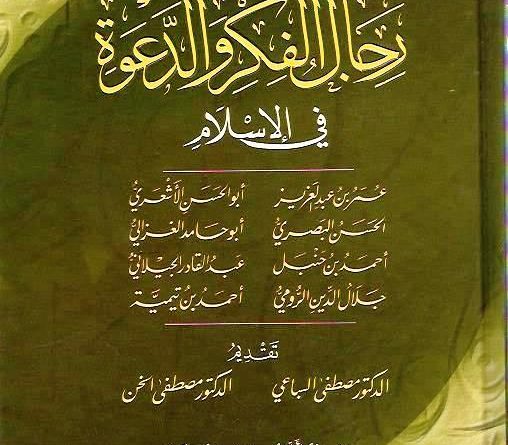 رِجَالُ الْفِكْرِ وَالدَّعْوَةِ
فِي الْإِسْلَامِ
عُمَرُ بنُ عَبدِ العَزيز أبو الحَسَنِ الأَشْعَرِيُّ
الحَسَنُ البَصْرِيُّ أبو حَامد الغَزاليُّ
أحمد بنُ حَنْبَل عَبدُ القَادِر الجِيلانيُّ
جَلالُ الدِّينِ الرُّومِيُّ أَحمَد بنُ تَيمِيَّة
تَقْدِيمُ
الدكتور مصطفى السباعي الدكتور مصطفى الخن